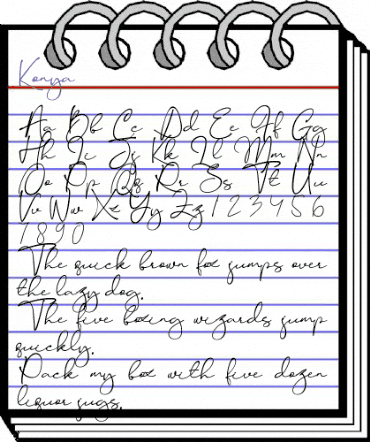 Konya
Aa Bb Cc Dd Ee Ff Gg
Hh Ii Jj Kk Ll Mm Nn
Oo Pp Qq Rr Ss Tt Uu
Vv Ww Xx Yy Zz 1 2 3 4 5 6
7 8 9 0
The quick brown fox jumps over
the lazy dog.
The five boxing wizards jump
quickly.
Pack my box with five dozen
liquor jugs.